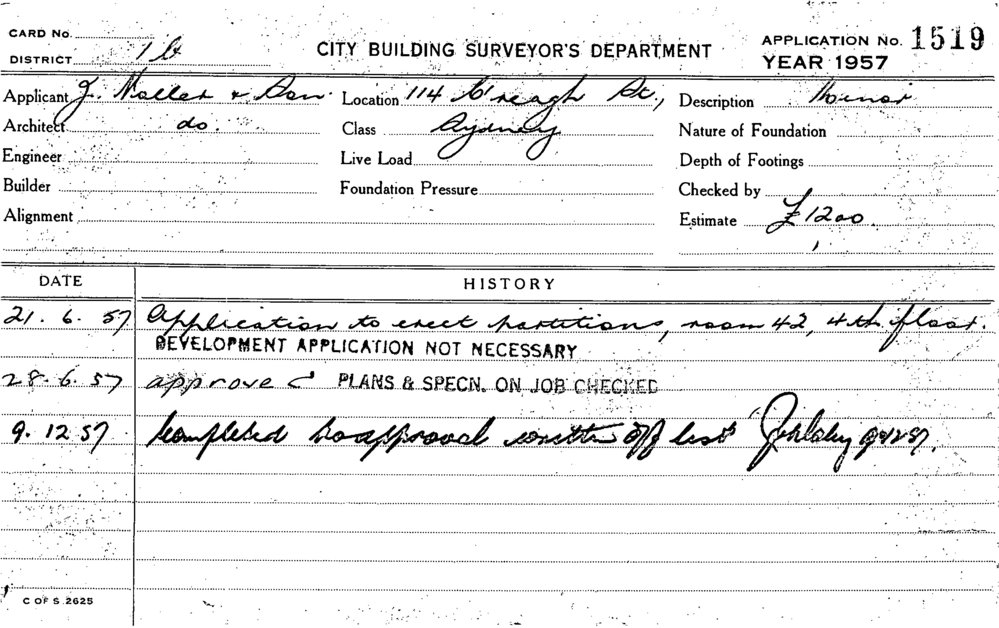 CARD No.
DISTRICT 1b
CITY BUILDING SURVEYOR'S DEPARTMENT
APPLICATION No. 1519
YEAR 1957
Applicant J. Moller & Son. Location 114 C'reagh St., Description Minor
Architect do. Class Sydney Nature of Foundation
Engineer Live Load Depth of Footings
Builder Foundation Pressure Checked by
Alignment Estimate £1200.
DATE HISTORY
21. 6. 57 Application to erect partitions, room 42, 4th floor.
DEVELOPMENT APPLICATION NOT NECESSARY
28. 6. 57 approved PLANS & SPECN. ON JOB CHECKED
9. 12 57 Completed to approval written off list 9.12.57.
C OF S 2625